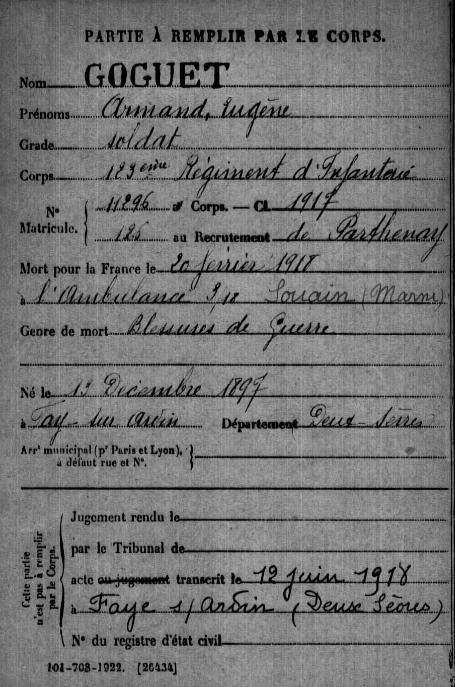 PARTIE À REMPLIR PAR LE CORPS.
Nom GOGUET
Prénoms Armand, Eugène
Grade soldat
Corps 123ème Régiment d'Infanterie
N° Matricule. { 11296 au Corps. — Cl. 1917
125 au Recrutement de Parthenay
Mort pour la France le 20 février 1918
à l'Ambulance 3/18 Souain (Marne)
Genre de mort Blessures de Guerre
Né le 13 Décembre 1897
à Fay-sur Ardin Département Deux-Sèvres
Arrt municipal (pr Paris et Lyon), à défaut rue et N°. }
Cette partie n'est pas à remplir par le Corps.
Jugement rendu le
par le Tribunal de
acte ou jugement transcrit le 12 juin 1918
à Faye s/Ardin (Deux Sèvres)
N° du registre d'état civil
101-708-1922. [26434]